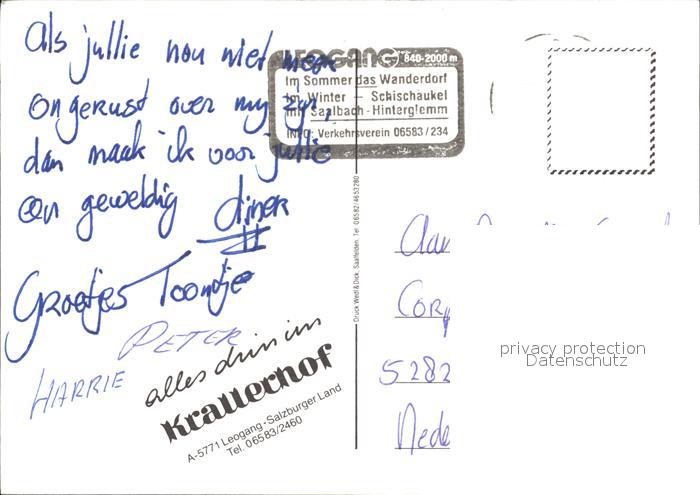 Als jullie nou niet meer
ongerust over my zijn,
dan maak ik voor jullie
een geweldig diner
Groetjes Toontje
PETER
HARRIE
alles drin im
Krallerhof
A-5771 Leogang - Salzburger Land
Tel. 06583/2460
LEOGANG 840-2000 m
Im Sommer das Wanderdorf
Im Winter - Schischaukel
mit Saalbach-Hinterglemm
INFO: Verkehrsverein 06583/234
Druck Wedl & Dick, Saalfelden, Tel. 06582/4653280
Aan
5282
Nede
privacy protection
Datenschutz